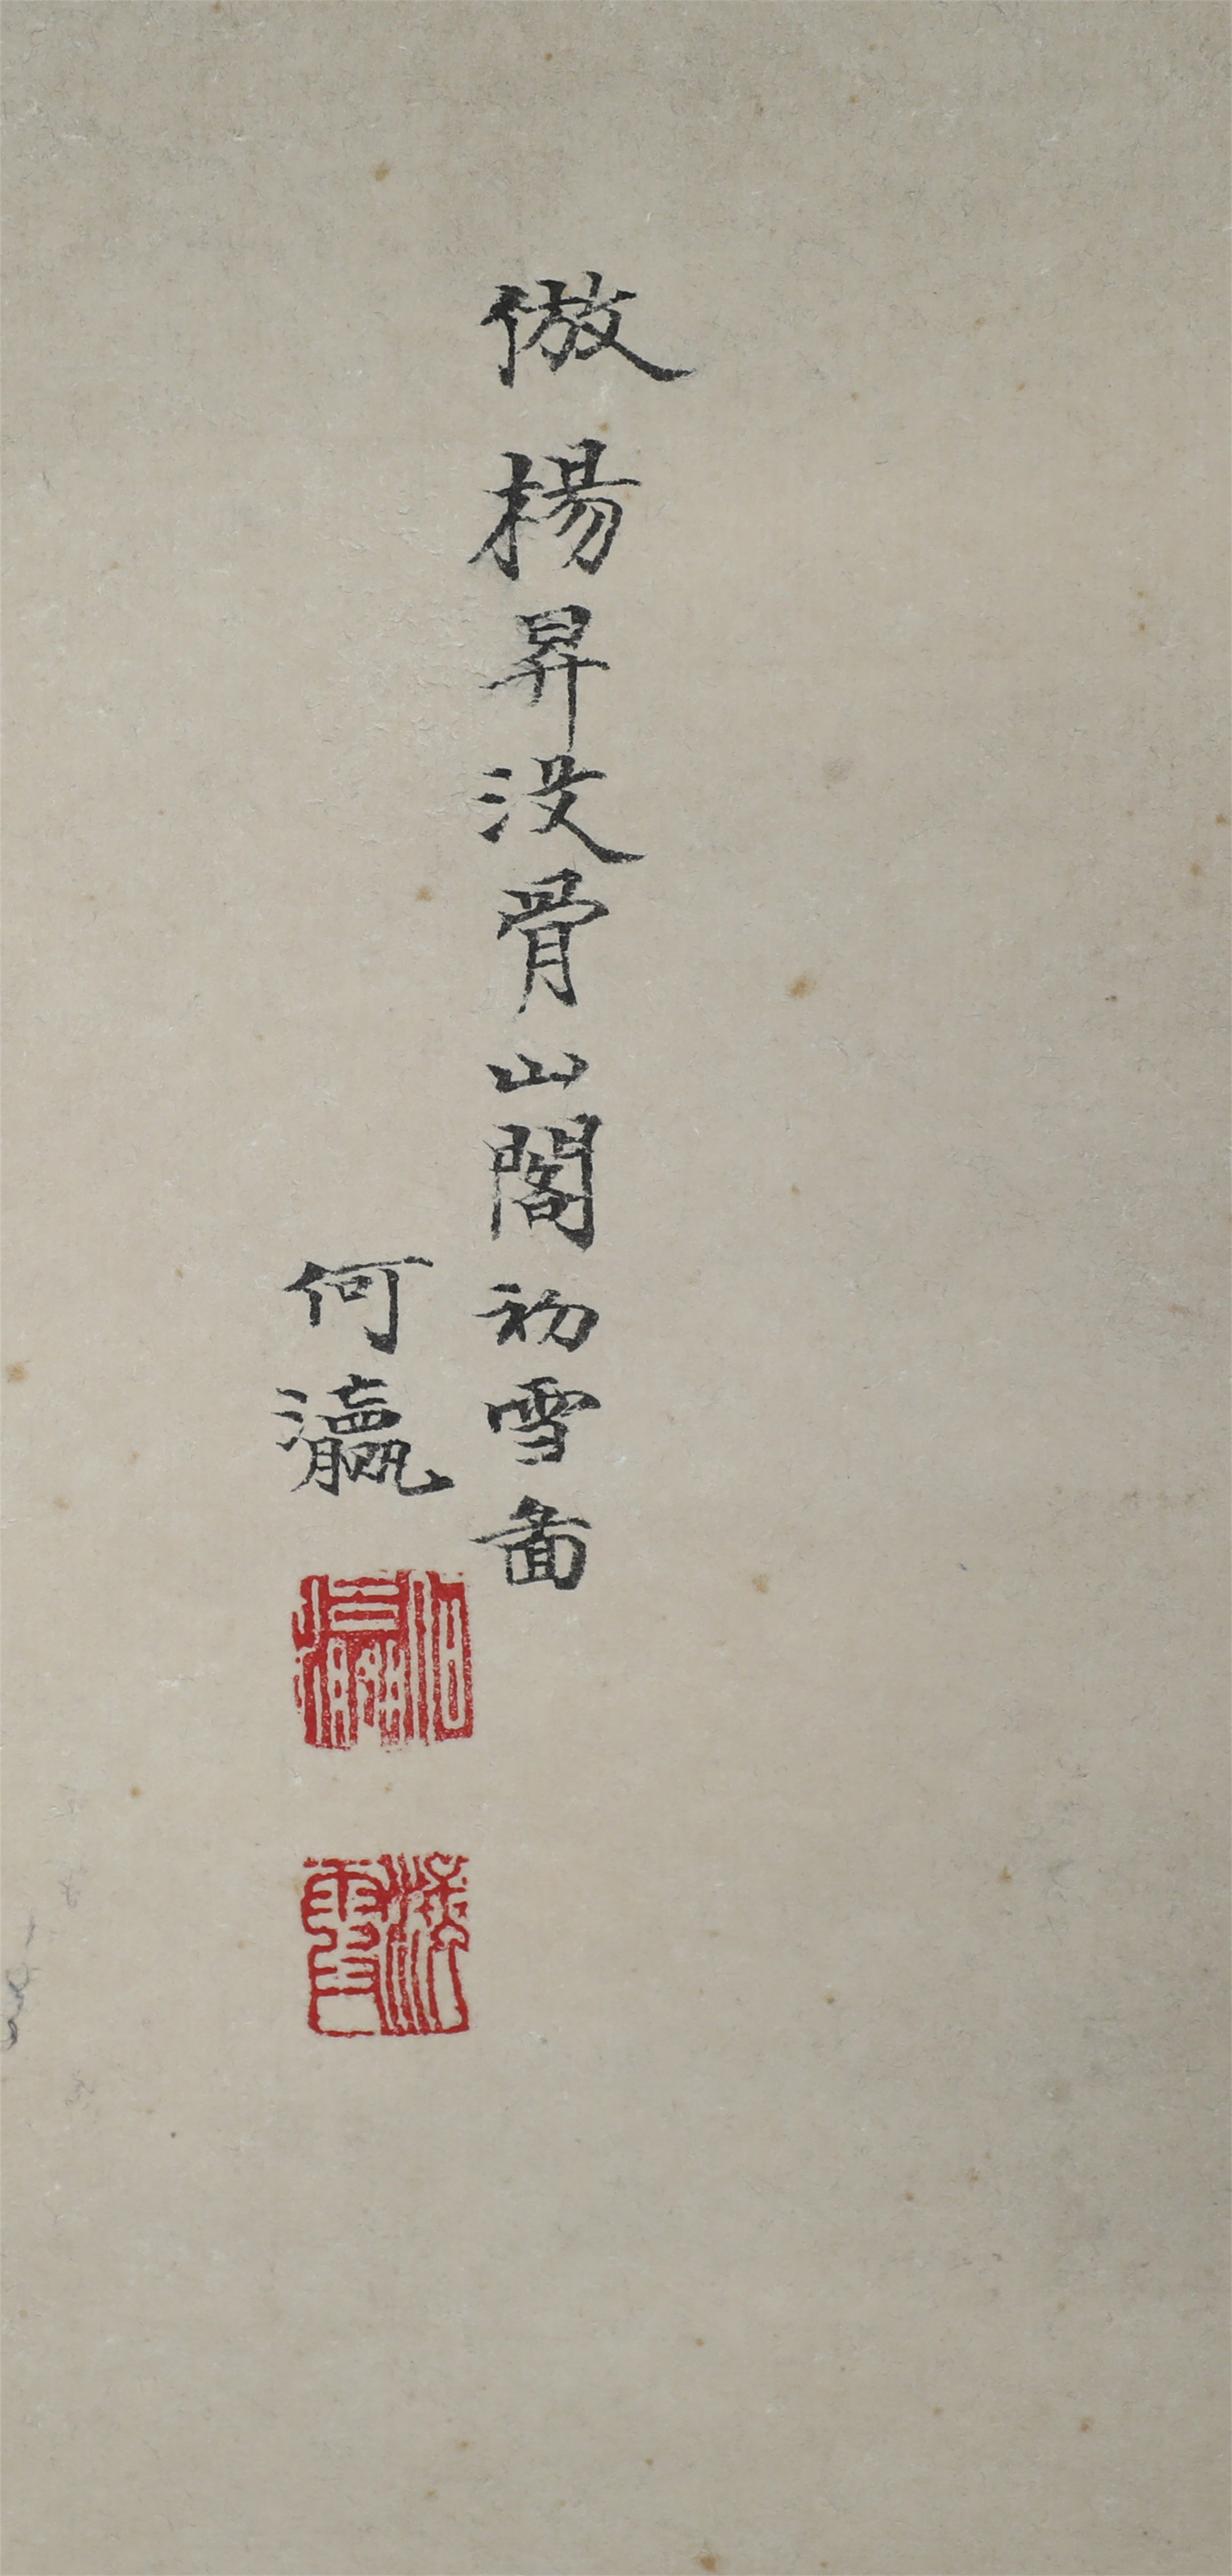 倣楊昇没骨山閣初雪啚
何瀛